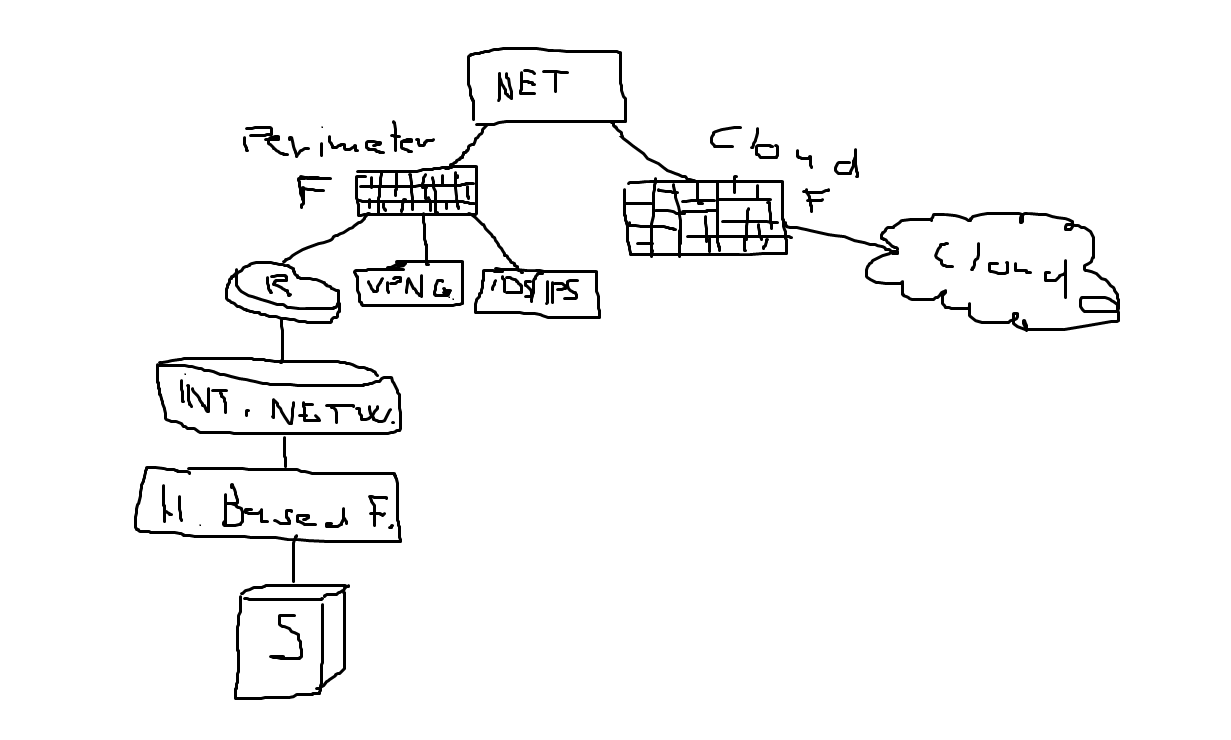 NET
Perimeter
F
Cloud
F
Cloud
R
VPN G.
IDS/IPS
INT. NETW.
H. Based F.
S